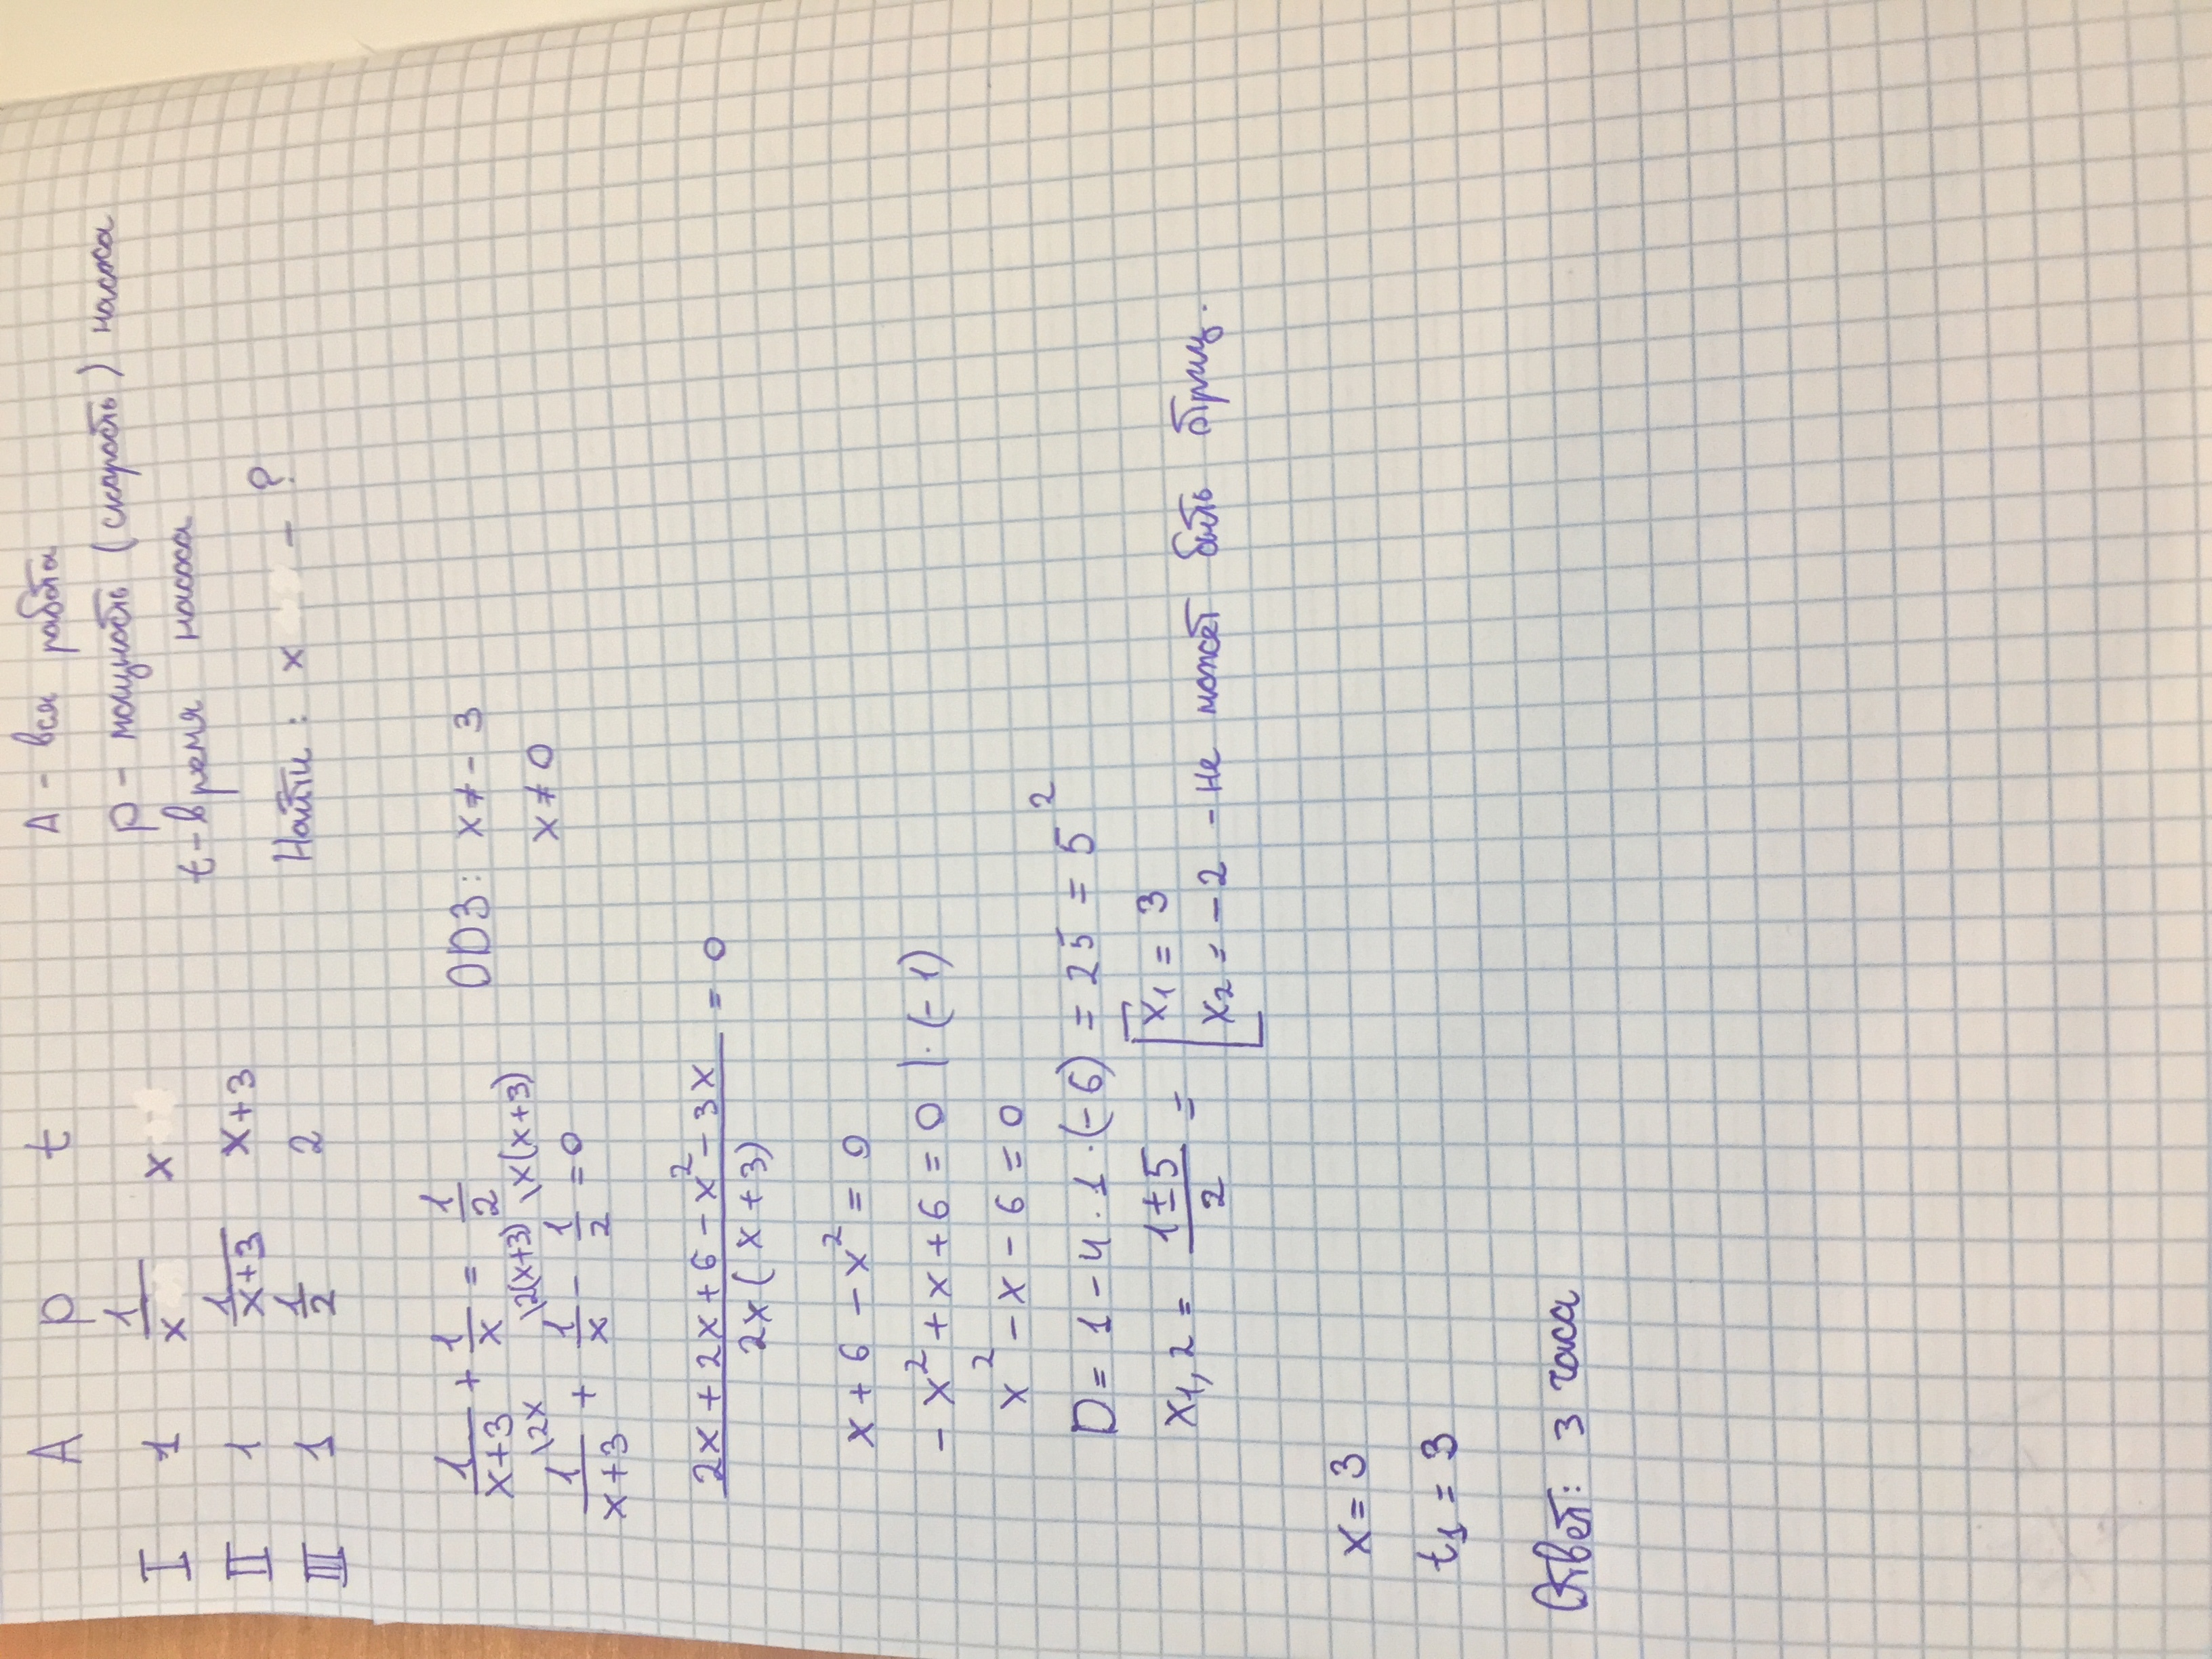 A P t
I 1 1/x x
II 1 1/(x+3) x+3
III 1 1/2 2
A - вся работа
P - мощность (скорость) насоса
t - время насоса
Найти: x - ?
1/(x+3) + 1/x = 1/2
ОДЗ: x ≠ -3
x ≠ 0
1/(x+3) \2x + 1/x \2(x+3) - 1/2 \x(x+3) = 0
(2x + 2x + 6 - x² - 3x)/(2x(x+3)) = 0
x + 6 - x² = 0
- x² + x + 6 = 0 | · (-1)
x² - x - 6 = 0
D = 1 - 4 · 1 · (-6) = 25 = 5²
x1,2 = (1 ± 5)/2 = [ x1 = 3
x2 = -2 - не может быть отриц.
x = 3
t1 = 3
Ответ: 3 часа